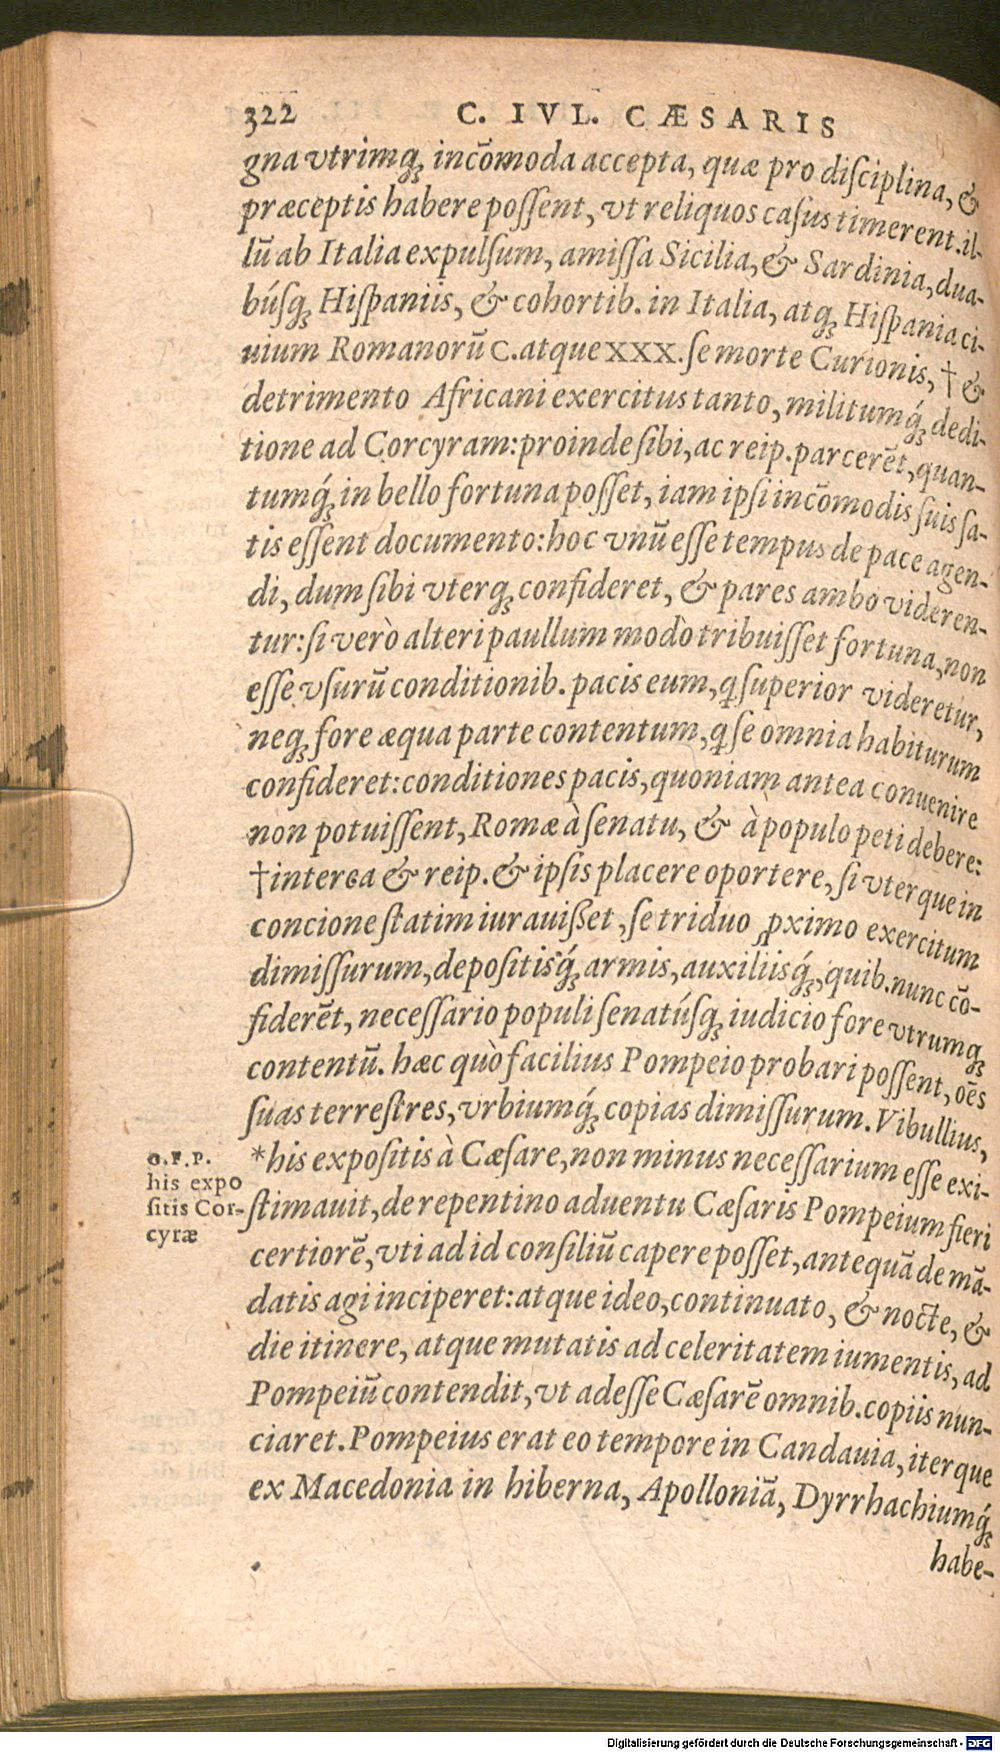 322 C. IVL. CÆSARIS
gna vtrimq; incōmoda accepta, quæ pro disciplina, &
præceptis habere possent, vt reliquos casus timerent. il-
lū ab Italia expulsum, amissa Sicilia, & Sardinia, dua-
búsq; Hispaniis, & cohortib. in Italia, atq; Hispania ci-
uium Romanorū C. atque XXX. se morte Curionis, † &
detrimento Africani exercitus tanto, militumq́; dedi-
tione ad Corcyram: proinde sibi, ac reip. parcerēt, quan-
tumq́; in bello fortuna posset, iam ipsi incōmodis suis sa-
tis essent documento: hoc vnū esse tempus de pace agen-
di, dum sibi vterq; confideret, & pares ambo videren-
tur: si verò alteri paullum modo tribuisset fortuna, non
esse vsurū conditionib. pacis eum, ꝗ superior videretur,
neq; fore æqua parte contentum, ꝗ se omnia habiturum
confideret: conditiones pacis, quoniam antea conuenire
non potuissent, Romæ à senatu, & à populo peti debere:
†interea & reip. & ipsis placere oportere, si vterque in
concione statim iurauißet, se triduo ꝓximo exercitum
dimissurum, depositisq́; armis, auxiliisq́;, quib. nunc cō-
fiderēt, necessario populi senatúsq; iudicio fore vtrumq;
contentū. hæc quò facilius Pompeio probari possent, oēs
suas terrestres, vrbiumq́; copias dimissurum. Vibullius,
*his expositis à Cæsare, non minus necessarium esse exi-
stimauit, de repentino aduentu Cæsaris Pompeium fieri
certiorē, vti ad id consiliū capere posset, antequā de mā-
datis agi inciperet: atque ideo, continuato, & nocte, &
die itinere, atque mutatis ad celeritatem iumentis, ad
Pompeiū contendit, vt adesse Cæsarē omnib. copiis nun-
ciaret. Pompeius erat eo tempore in Candauia, iterque
ex Macedonia in hiberna, Apolloniā, Dyrrhachiumq́;
habe-
O.F.P.
his expo
sitis Cor-
cyræ
Digitalisierung gefördert durch die Deutsche Forschungsgemeinschaft - DFG